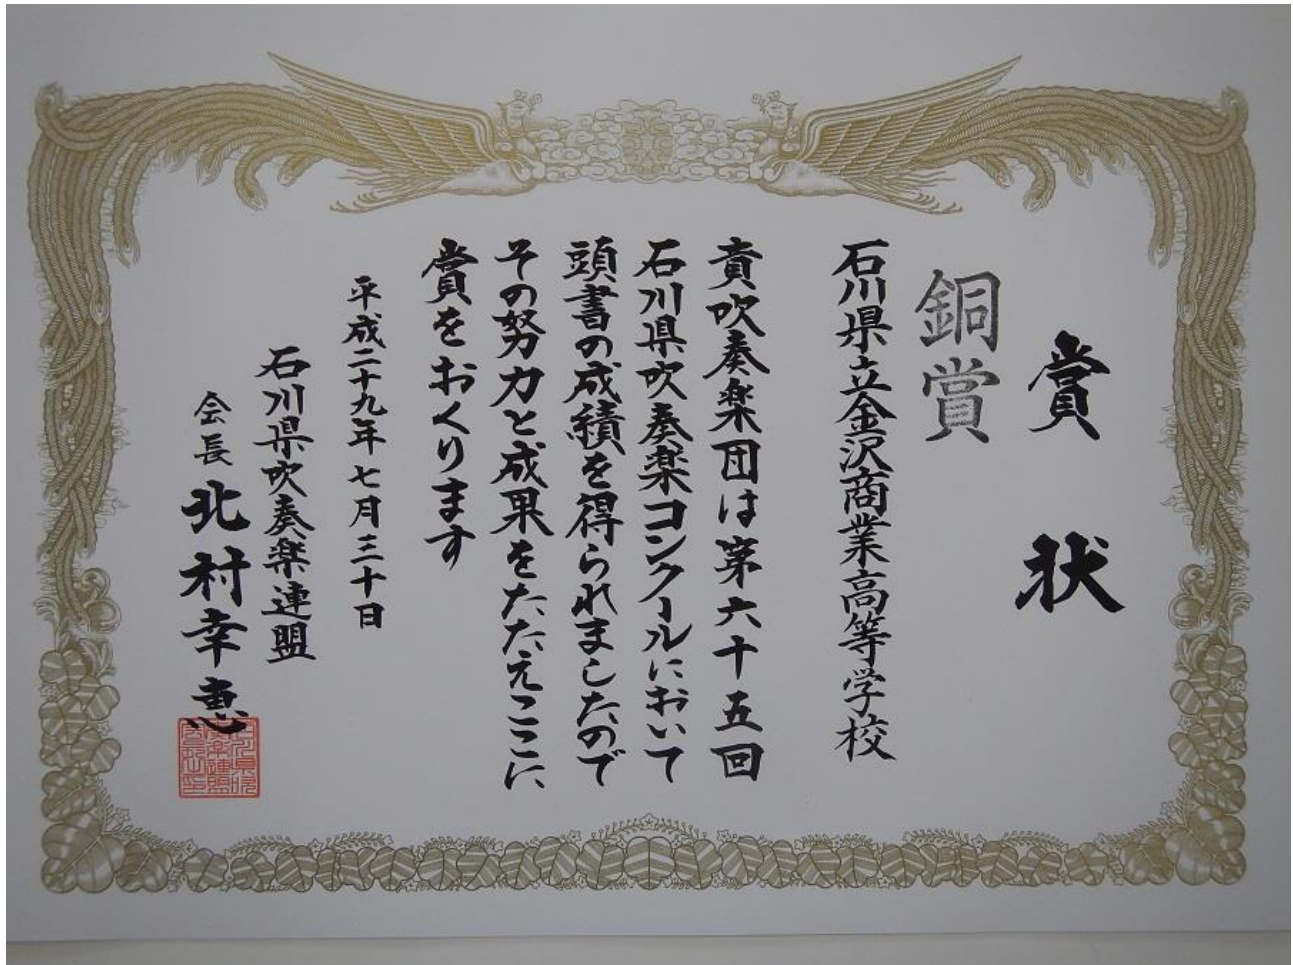 賞状
銅賞
石川県立金沢商業高等学校
貴吹奏楽団は第六十五回
石川県吹奏楽コンクールにおいて
頭書の成績を得られましたので
その努力と成果をたたえここに
賞をおくります
平成二十九年七月三十日
石川県吹奏楽連盟
会長 北村幸恵